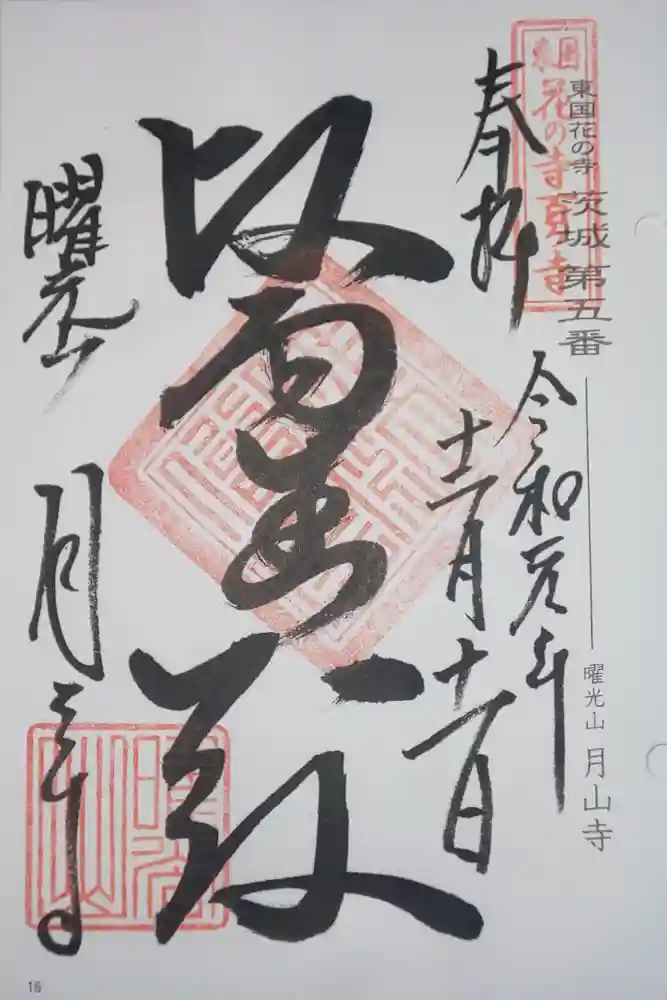 東国花の寺 茨城 第五番 曜光山 月山寺
東国
花の寺百ヶ寺
奉拝
令和元年
十一月十一日
醫王殿
曜光山 月山寺
16